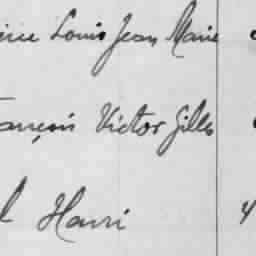 Louis Jean Marie
François Victor Gilles
l Henri 4